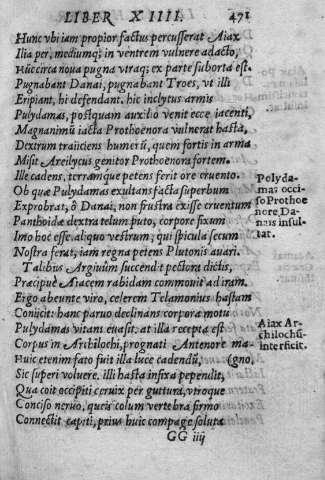 LIBER XIIII. 471
Hunc vbi iam propior factus percusserat Aiax
Ilia per, mediumq; in ventrem vulnere adacto,
Huc circa noua pugna vtraq; ex parte suborta est.
Pugnabant Danai, pugnabant Troes, vt illi
Eripiant, hi defendant. hic inclytus armis
Pulydamas, postquam auxilio venit ecce iacenti,
Magnanimũ iacta Prothoenora vulnerat hasta,
Dextrum traiiciens humerũ, quem fortis in arma
Misit Areilycus genitor Prothoenora fortem.
Ille cadens, terram que petens ferit ore cruento.
Ob quæ Pulydamas exultans facta superbum
Exprobrat, ô Danai, non frustra exisse cruentum
Panthoidæ dextra telum puto, corpore fixum
Imo hoc esse. aliquo vestrum, qui spicula secum
Nostra ferat, iam regna petens Plutonis auari.
Talibus Argiuũm succendit pectora dictis,
Præcipuè Aiacem rabidam commouit ad iram.
Ergo abeunte viro, celerem Telamonius hastam
Coniicit: hanc paruo declinans corpora motu
Pulydamas vitans euasit: at illa recepta est
Corpus in Archilochi, prognati Antenore ma-
Huic etenim fato fuit illa luce cadendũ, (gno,
Sic superi voluere. illi hasta infixa pependit,
Qua coit occipiti ceruix per guttura, vtroque
Conciso neruo, queis colum vertebra firmo
Connectit capiti, prius huic compage soluta
GG iiij
Polyda-
mas occi-
so Prothoe
nore, Da-
nais insul-
tat.
Aiax Ar-
chilochũ
interficit.